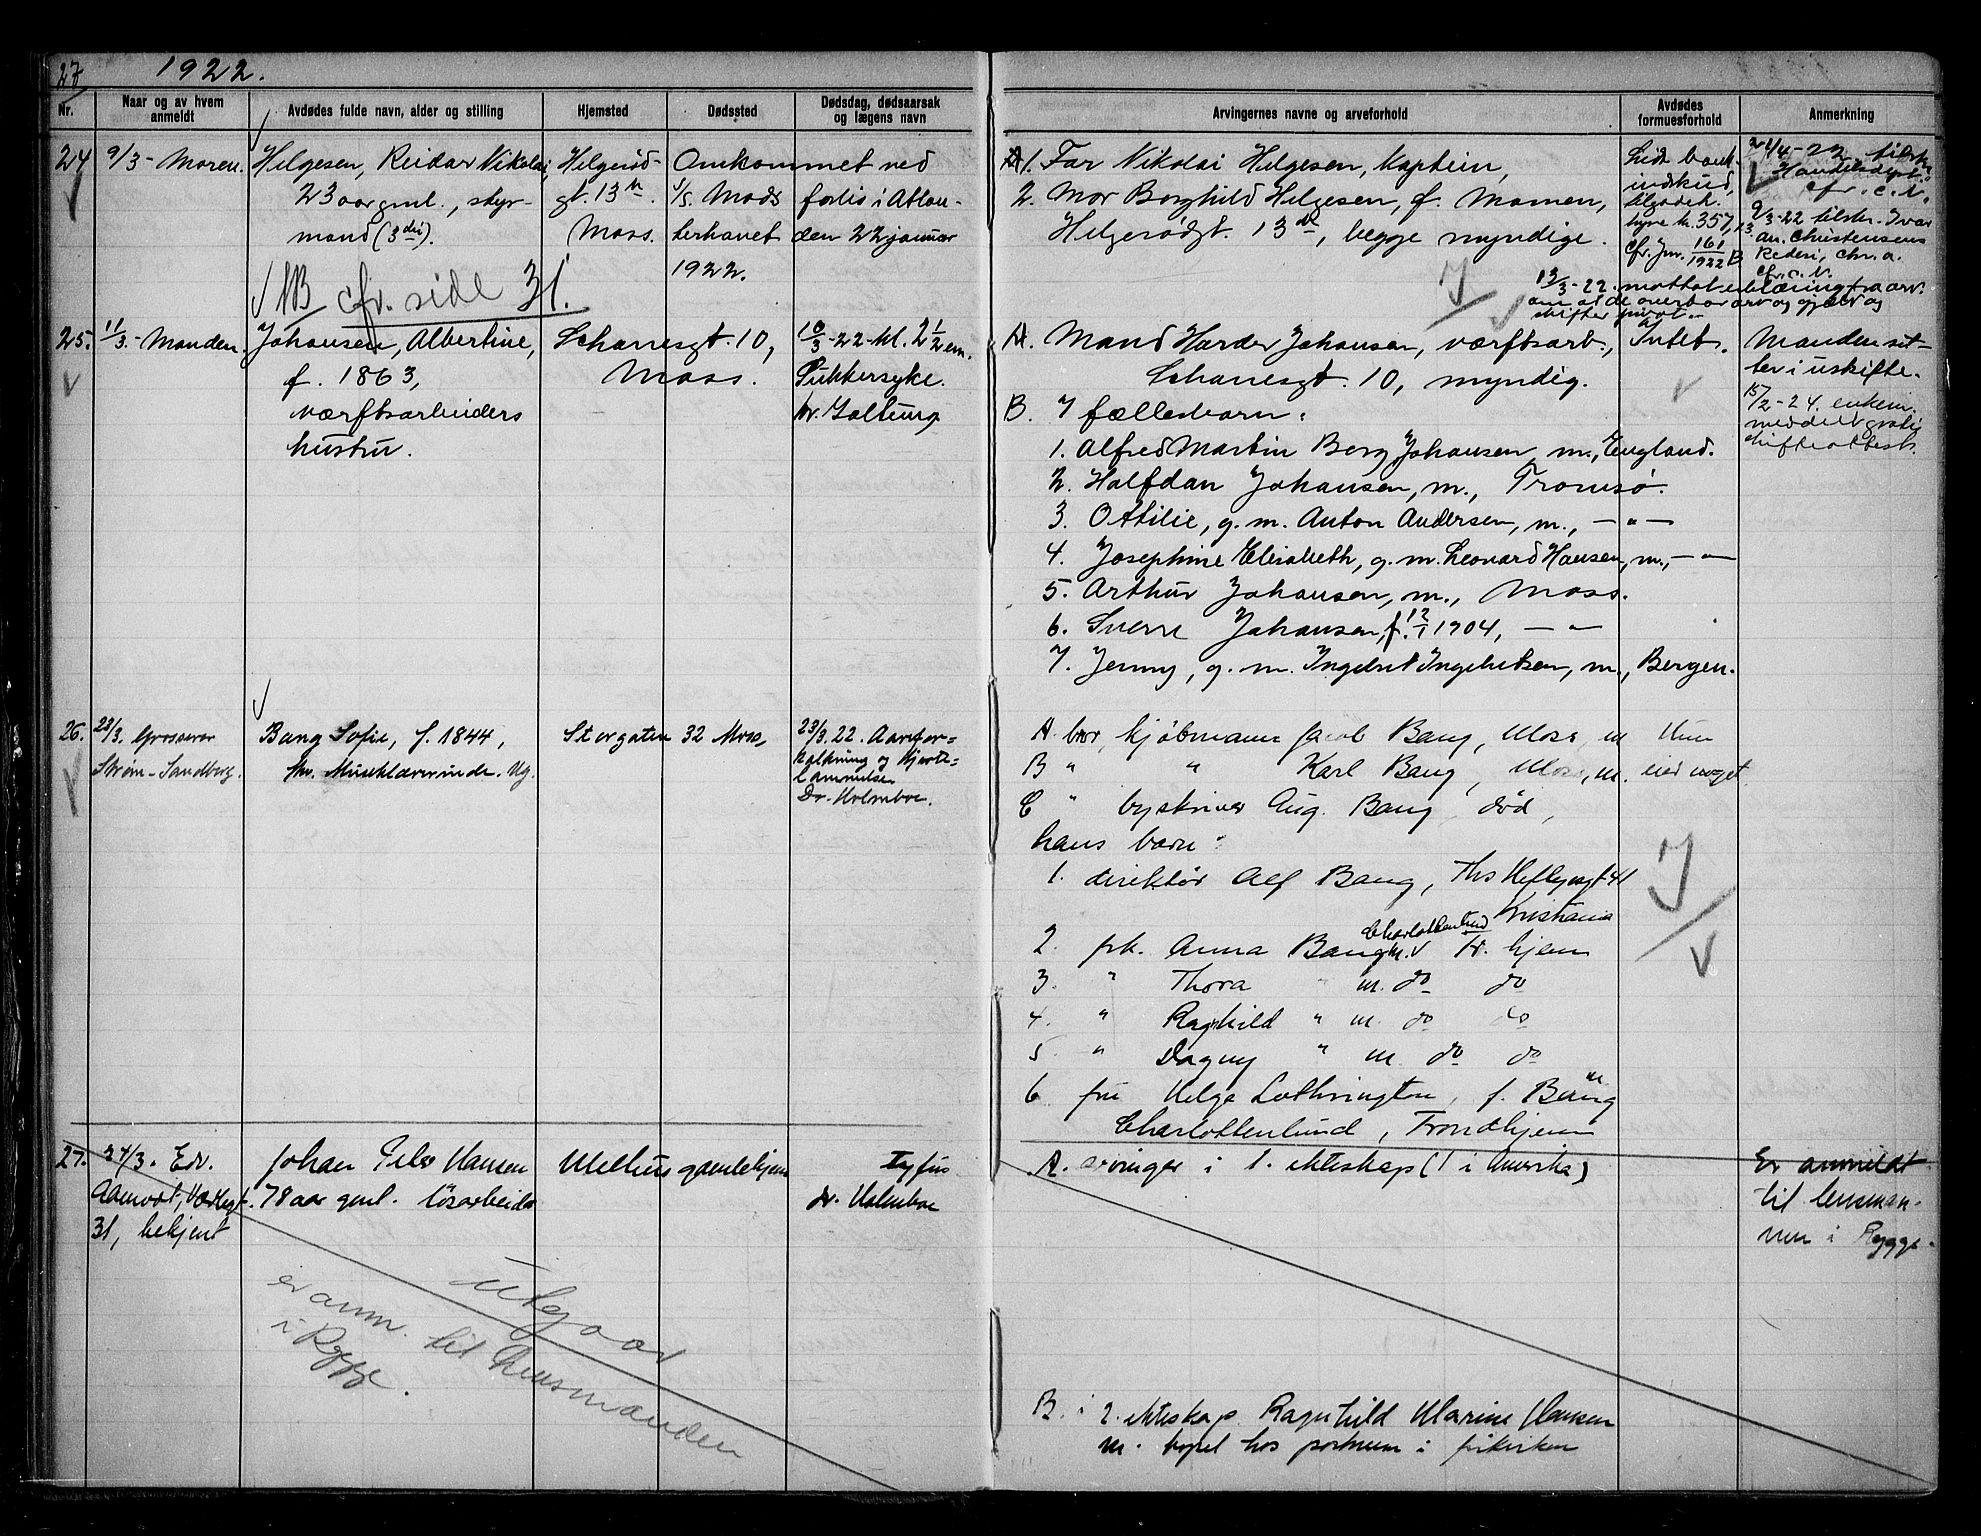 27
1922.
Nr.
Naar og av hvem anmeldt
Avdødes fulde navn, alder og stilling
Hjemsted
Dødssted
Dødsdag, dødsaarsak og lægens navn
Arvingernes navne og arveforhold
Avdødes formuesforhold
Anmerkning
24 9/3 - Moren.
Helgesen, Reidar Nikolai,
23 aar gml., styr-
mand (3die).
Helgerød-
gt. 13
Moss.
Omkommet ved
S/S. Mods forlis i Atlan-
terhavet den 22 januar
1922.
A 1. Far Nikolai Helgesen, Kaptein,
2. Mor Borghild Helgesen, f. Mamen,
Helgerødgt. 13 , begge myndige.
Lidt bank-
indskud,
tilgodeh.
hyre kr. 357,13
cfr. Jnr. 161/1922 B
21/4-22 tilskr.
Handelsdept.
cfr. c. V.
9/3-22 tilskr. Ivar
An. Christensens
Rederi, Chr.a.
cfr. c. V.
13/3-22. mottat erklæring fra arv.
om at de overtar arv og gjæld og
skifter privat.
NB cfr. side 31.
25. 11/3. - Manden.
Johansen, Albertine,
f. 1863,
værftsarbeiders
hustru.
Schanesgt. 10,
Moss.
10/3-22 - kl. 2 1/2 em.
Sukkersyke.
Dr. Galtung
A. Mand Harder Johansen, værftsarb.,
Schanesgt. 10, myndig.
Intet.
Manden sit-
ter i uskifte.
15/2-24. enkem.
meddelt gratis
skifteattest.
B. 7 fællesbarn:
1. Alfred Martin Berg Johansen, m., England.
2. Halfdan Johansen, m., Tromsø.
3. Ottilie, g. m. Anton Andersen, m., — " —
4. Josephine Elisabeth, g. m. Leonard Hansen, m., — " —
5. Arthur Johansen, m., Moss.
6. Sverre Johansen, f. 12/1 1904, — " —
7. Jenny, g. m. Ingebret Ingebretsen, m., Bergen.
26. 23/3. Grosserer
Strøm-Sandberg.
Bang Sofie, f. 1844,
fhv. Musiklærerinde. Ug.
Storgaten 32 Moss,
23/3. 22. Aarefor=
kalkning og Hjerte=
lammelse
Dr. Holmboe.
A bror, kjøbmann Jacob Bang, Moss, m
B " " Karl Bang, Moss, m.
C " byskriver Aug. Bang død,
hans barn:
Hun
eied noget
1. direktør Alf Bang, Ths Heftyesgt 41
Kristiania
2. frk. Anna Bang m. Charlottenlund v Tr. hjem
3. " Thora " m. do do
4. " Ragnhild " m. do do
5 " Dagny " m. do do
6 fru Helga Lothrington, f. Bang m
Charlottenlund, Trondhjem
27. 24/3. Edv.
31, bekjent
Johan Peter Hansen
78 aar gml. løsarbeider
Melhus gamlehjem
tyfus
dr. Holmboe
A. arvinger i 1. ekteskap (1 i Amerika)
Er anmeldt
til lensman-
nen i Rygge.
utgaar
er anm. til lensmanden
i Rygge.
B. i 2. ekteskap Ragnhild Marine Hansen
m. bopel hos portneren i frikirken